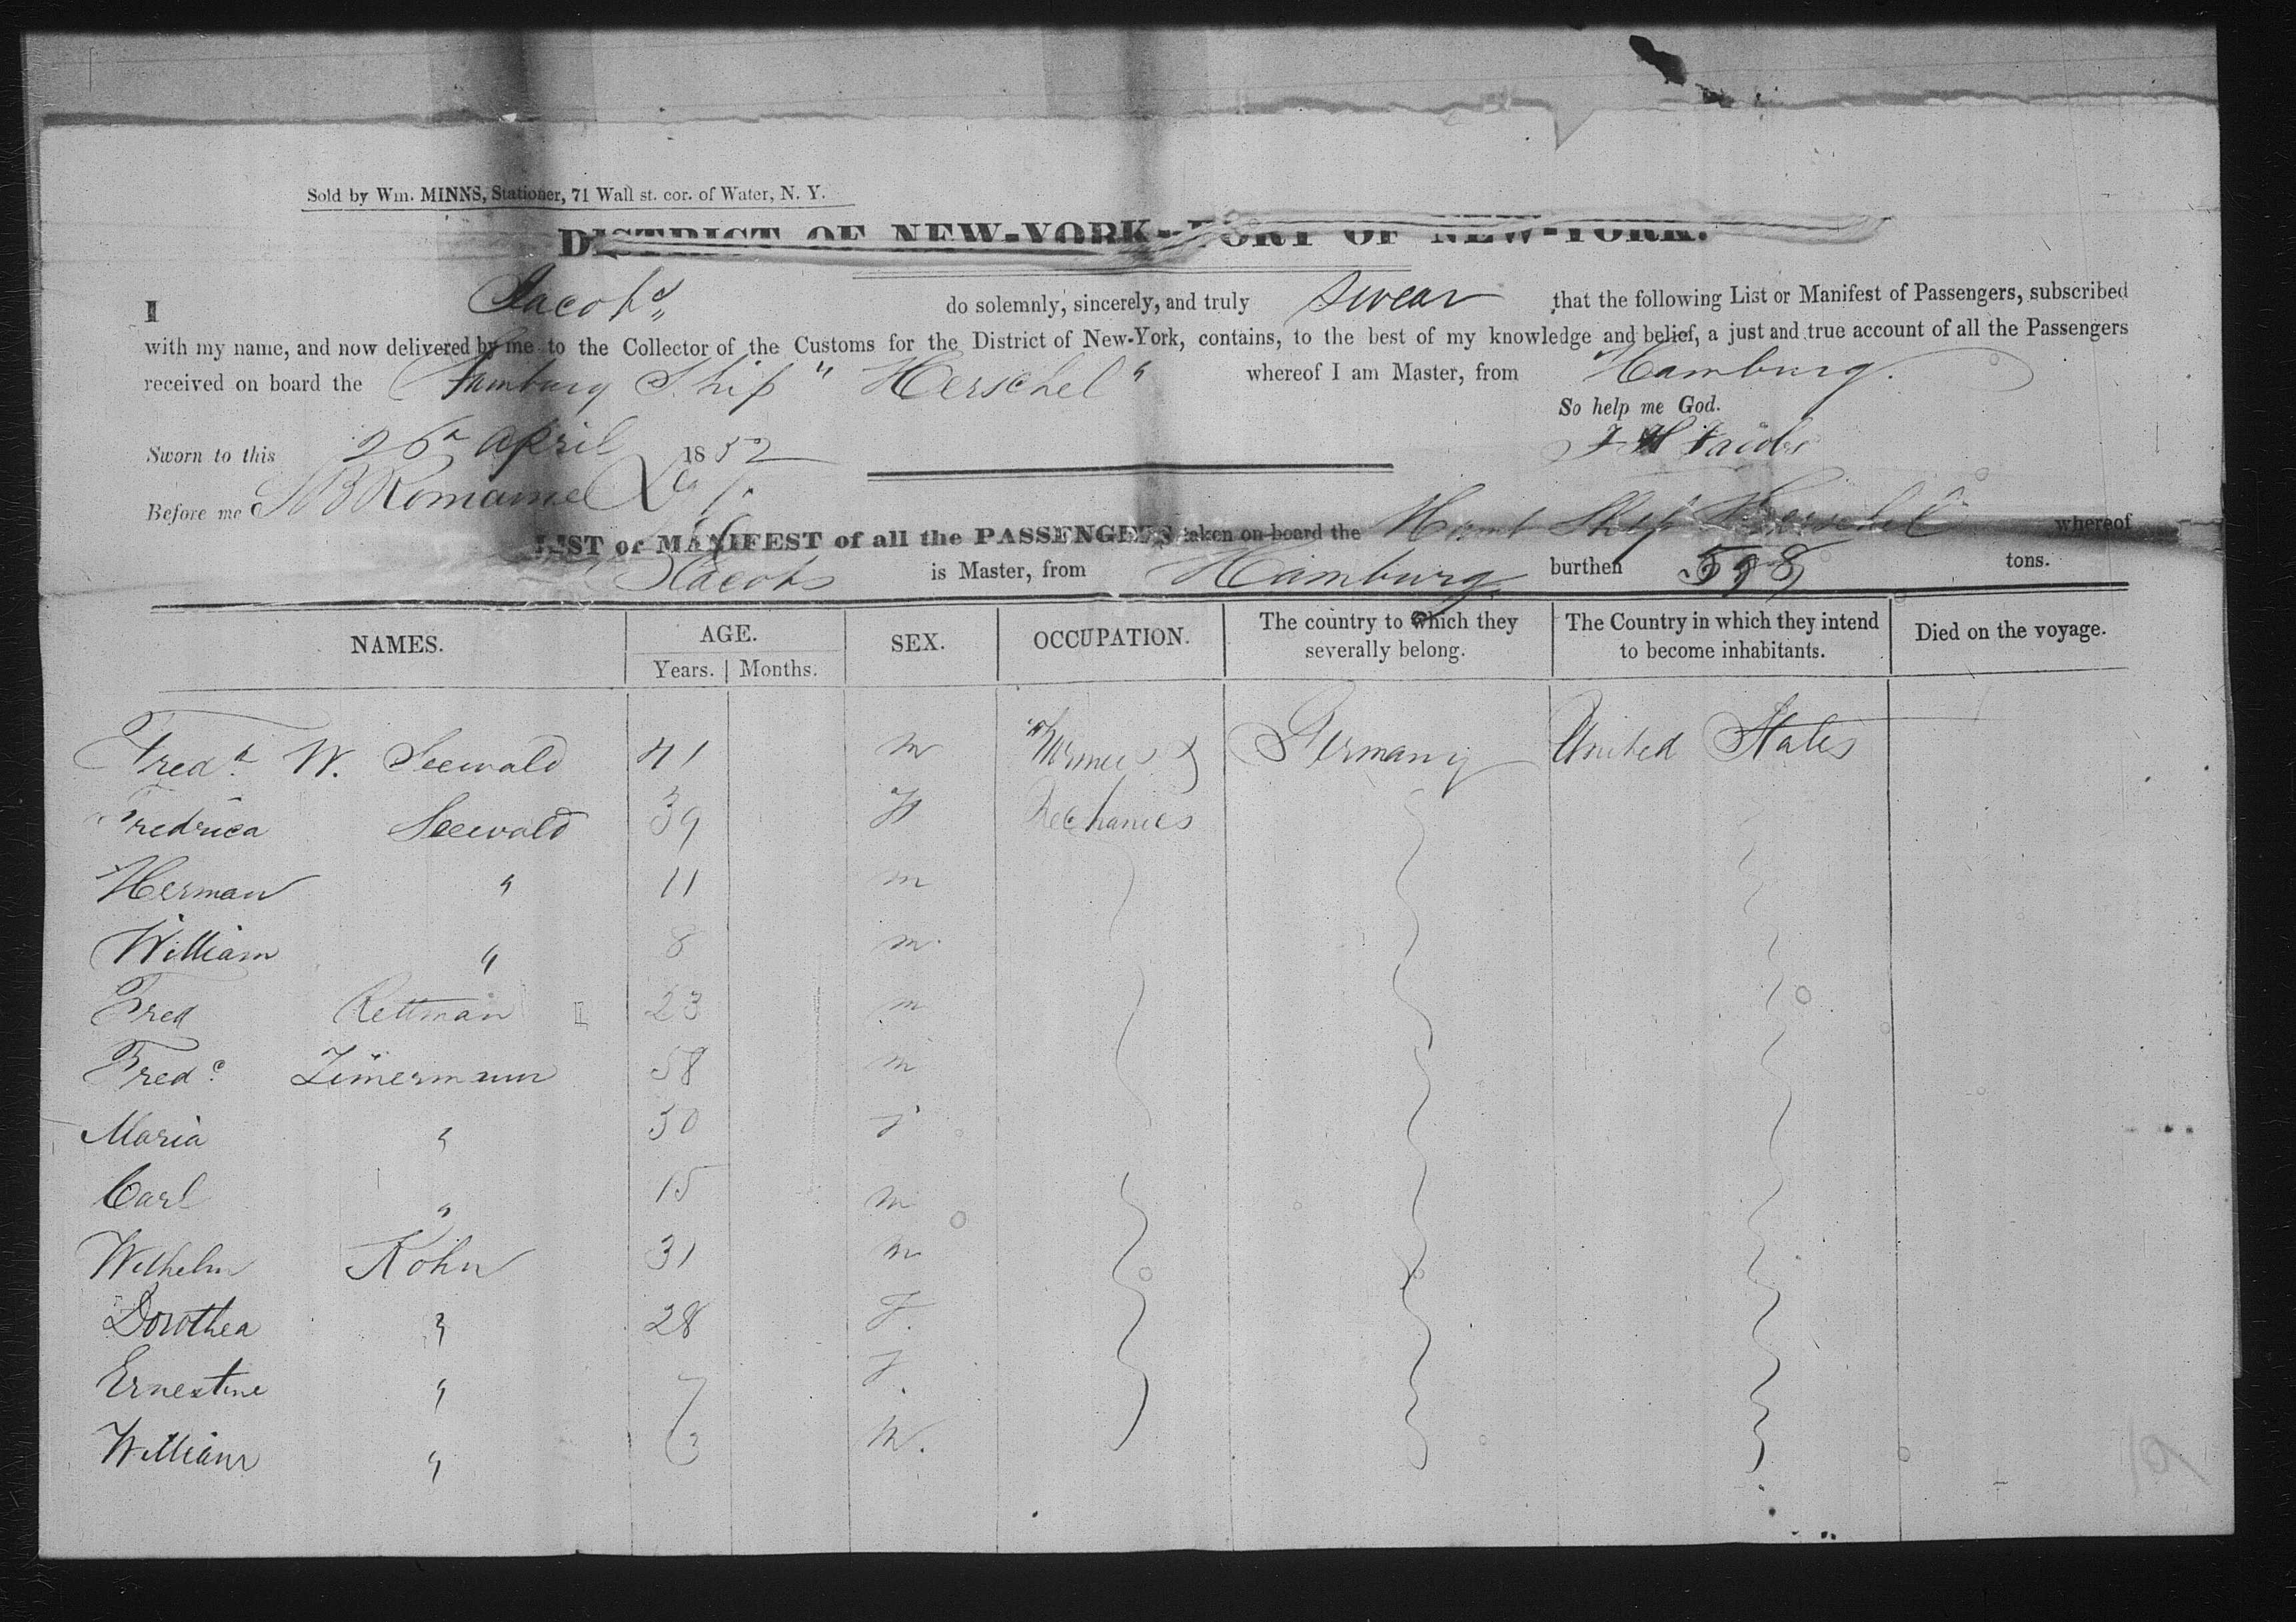 Sold by Wm. MINNS, Stationer, 71 Wall st. cor. of Water, N. Y.
DISTRICT OF NEW-YORK--PORT OF NEW-YORK.
I Jacobs do solemnly, sincerely, and truly swear that the following List or Manifest of Passengers, subscribed
with my name, and now delivered by me to the Collector of the Customs for the District of New-York, contains, to the best of my knowledge and belief, a just and true account of all the Passengers
received on board the Hamburg Ship "Herschel" whereof I am Master, from Hamburg.
So help me God.
Sworn to this 26th April 1852
Jacobs
Before me Romaine
LIST or MANIFEST of all the PASSENGERS taken on board the Hamb Ship Herschel whereof
Jacobs is Master, from Hamburg burthen tons.
NAMES. AGE. SEX. OCCUPATION. The country to which they severally belong. The Country in which they intend to become inhabitants. Died on the voyage.
Years. Months.
Fredk. W. Seewald 41 m Farmers & Germany United States
Fredrica Seewald 39 F Mechanics
Herman " 11 m
William " 8 m.
Fred Rettman 23 m
Fredc. Zimermann 58 m
Maria " 50 f
Carl " 15 m
Wilhelm Kohn 31 m
Dorothea " 28 F.
Ernestine " 7 F.
William " 3 M.
19